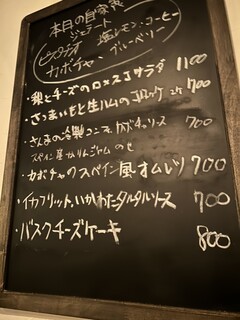 本日の自家製
ジェラート
ピスタチオ 塩レモン、コーヒー
カボチャ、ブルーベリー
・梨とチーズのロメスコサラダ 1100
・さつまいもと生ハムの
・さんまの冷製コンフィ カボチャソース 700
スペイン産 のせ
・カボチャのスペイン風オムレツ 700
・イカフリット、いかわたタルタルソース 700
・バスクチーズケーキ 800